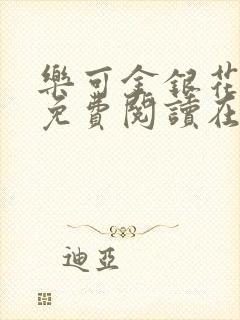 樂可金銀花
免費閱讀在
迪亞